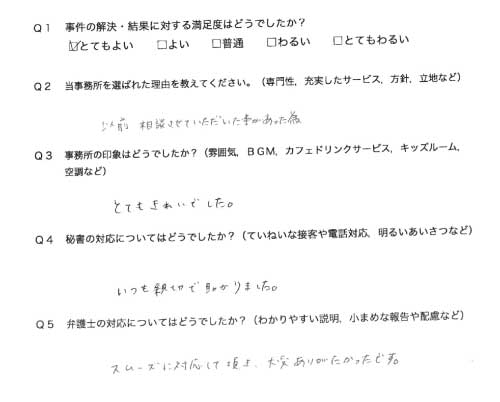 Q1 事件の解決・結果に対する満足度はどうでしたか？
☑とてもよい □よい □普通 □わるい □とてもわるい
Q2 当事務所を選ばれた理由を教えてください。（専門性，充実したサービス，方針，立地など）
以前 相談させていただいた事があった為
Q3 事務所の印象はどうでしたか？（雰囲気，ＢＧＭ，カフェドリンクサービス，キッズルーム，
空調など）
とてもきれいでした。
Q4 秘書の対応についてはどうでしたか？（ていねいな接客や電話対応，明るいあいさつなど）
いつも親切で助かりました。
Q5 弁護士の対応についてはどうでしたか？（わかりやすい説明，小まめな報告や配慮など）
スムーズに対応して頂き、大変ありがたかったです。